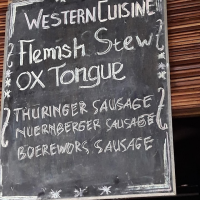 WESTERN CUISINE
Flemish Stew
OX TONGUE
THÜRINGER SAUSAGE
NUERNBERGER SAUSAGE
BOEREWORS SAUSAGE